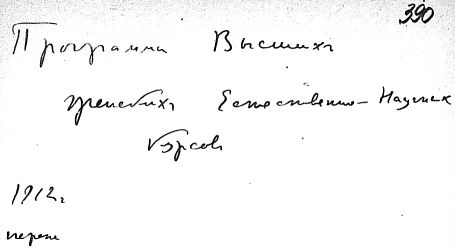 390
Программа Высшихъ
женскихъ Естественно-Научных
Курсов
1912г